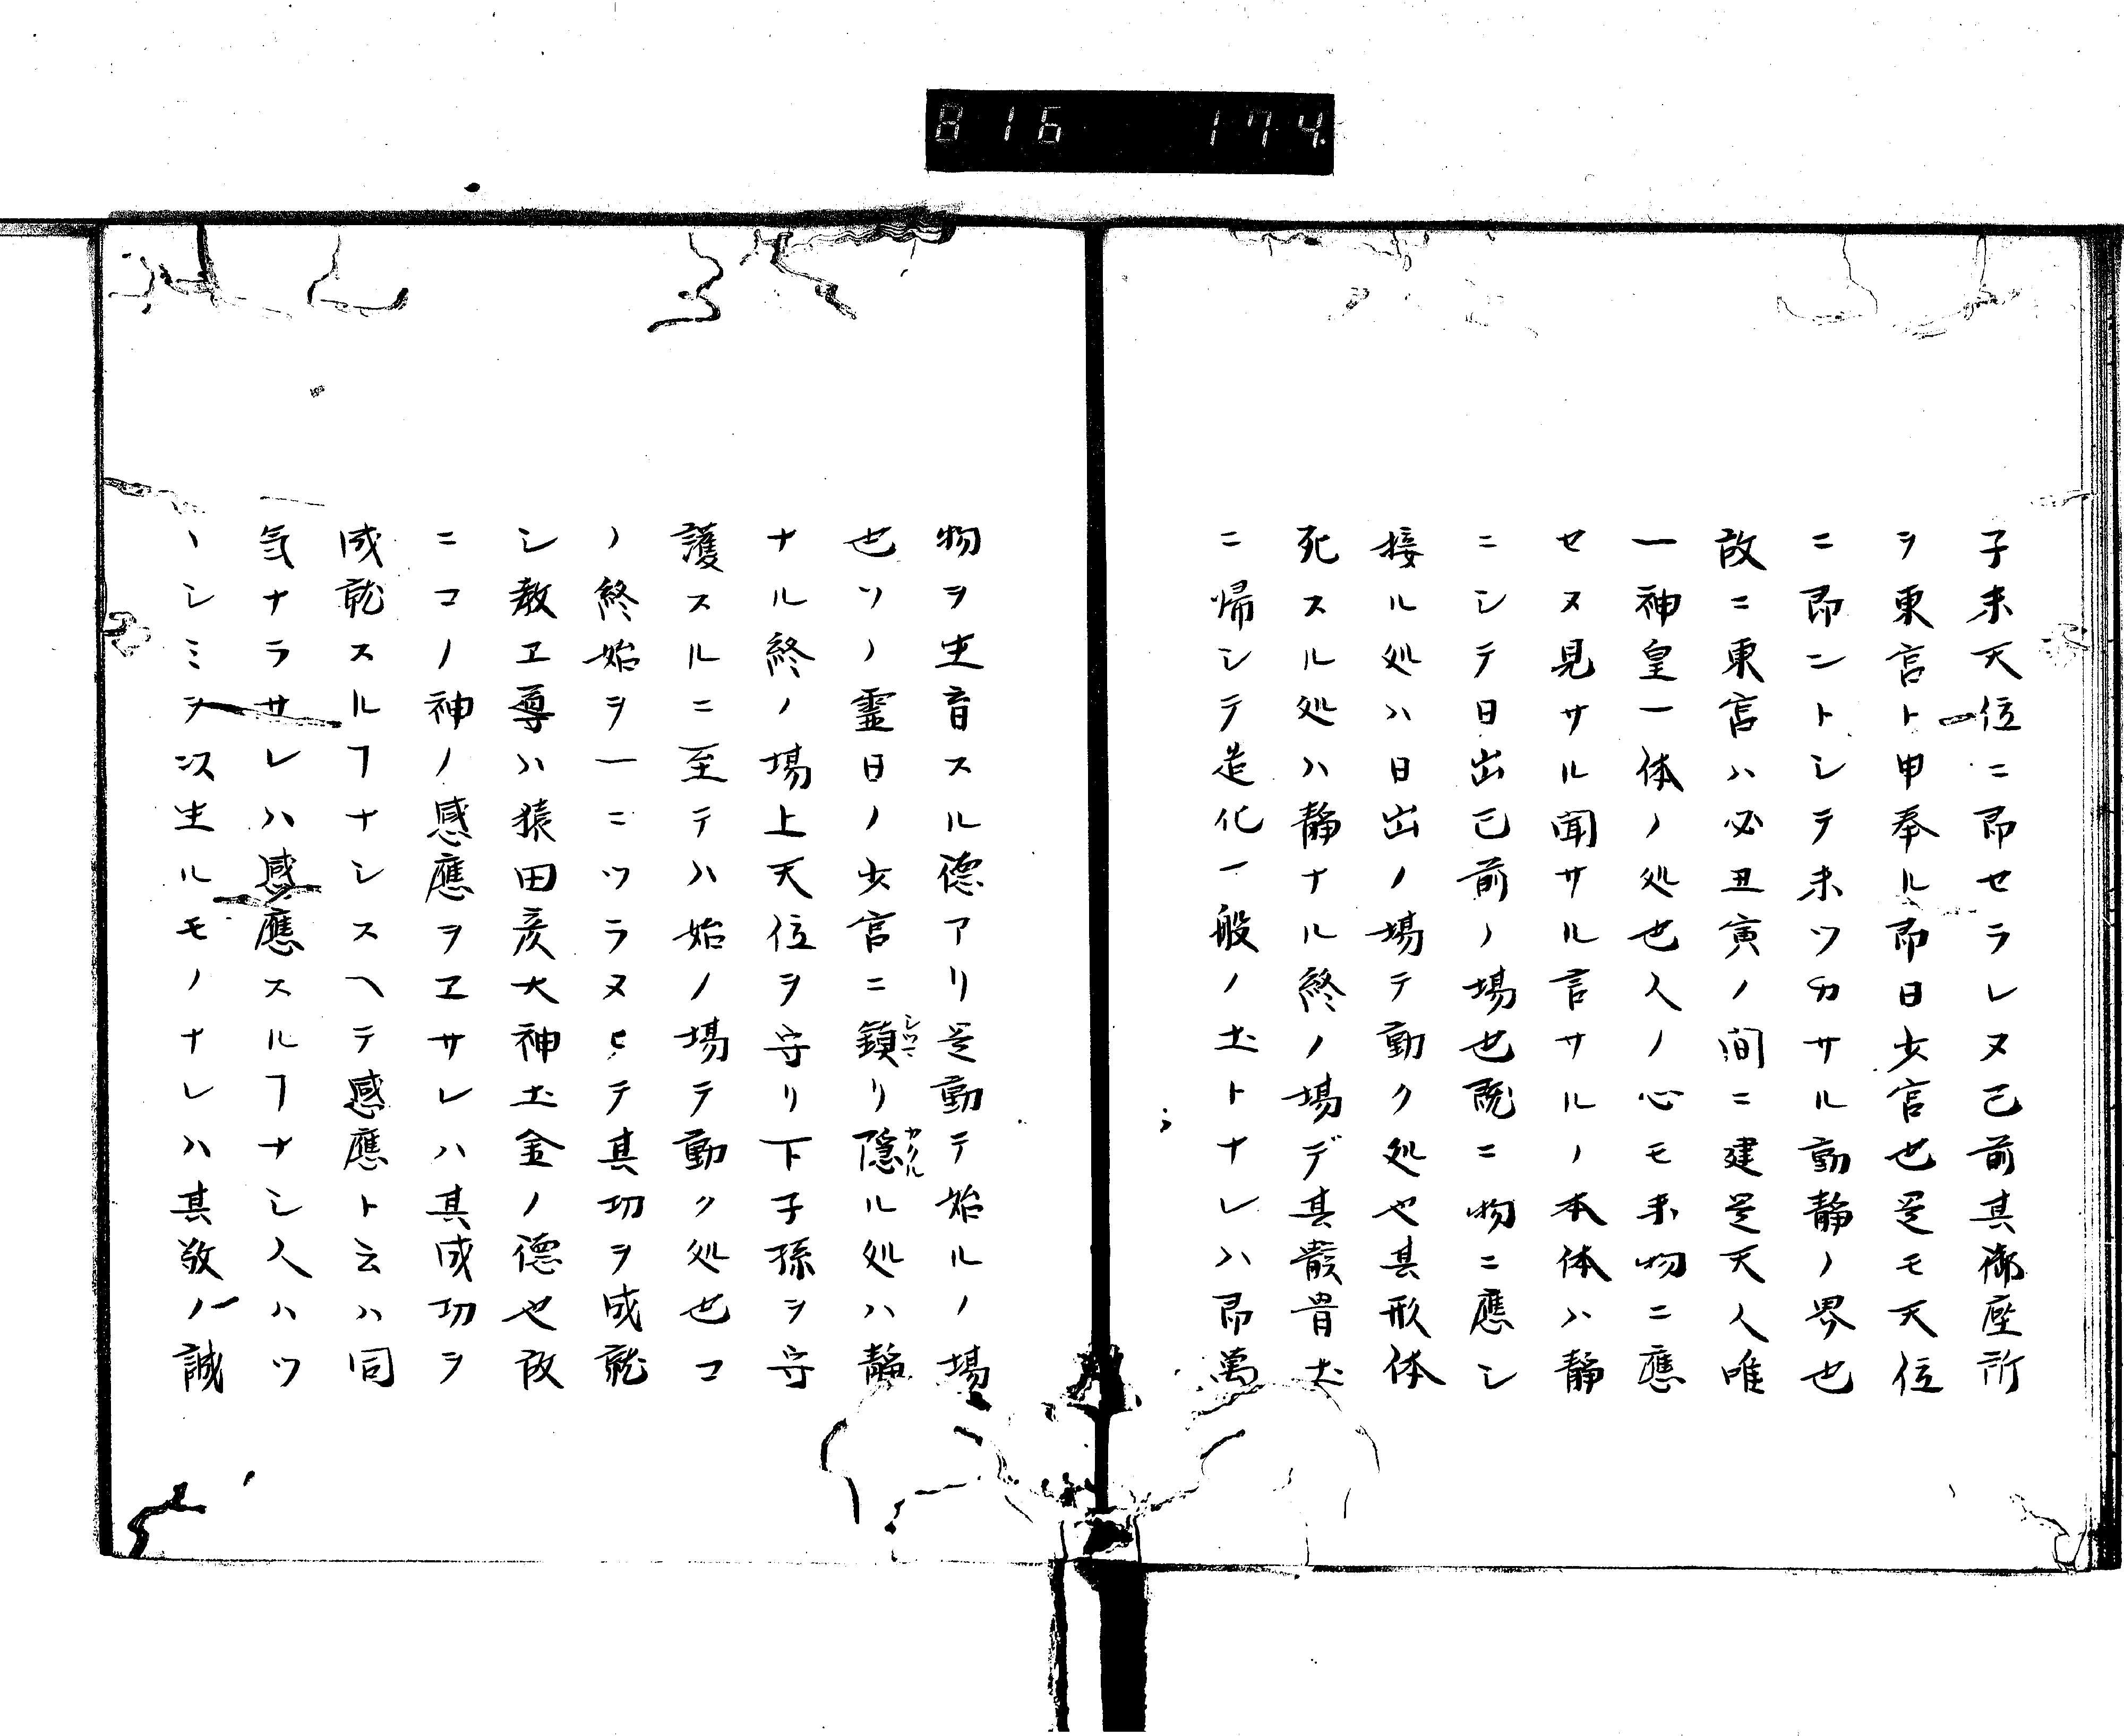 816 174.
子未天位ニ即セラレヌ已前其御座所
ヲ東宮ト申奉ル即日少宮也是モ天位
ニ即ントシテ未ツカサル動静ノ界也
故ニ東宮ハ必丑寅ノ間ニ建是天人唯
一神皇一体ノ処也人ノ心モ未物ニ應
セヌ見サル聞サル言サルノ本体ハ静
ニシテ日出已前ノ場也既ニ物ニ應シ
接ル処ハ日出ノ場テ動ク処也其形体
死スル処ハ静ナル終ノ場デ其叢骨土
ニ帰シテ造化一般ノ土トナレハ即萬
物ヲ生育スル德アリ是動テ始ルノ場
也ソノ霊日ノ少宮ニ鎮リ隠ル処ハ静
シツマ
カクル
ナル終ノ場上天位ヲ守リ下子孫ヲ守
護スルニ至テハ始ノ場テ動ク処也コ
ノ終始ヲ一ニツラヌヒテ其功ヲ成就
シ教ヱ尊ハ猿田彦大神土金ノ德也故
ニコノ神ノ感應ヲヱサレハ其成功ヲ
成就スルヿナシスヘテ感應ト云ハ同
気ナラサレハ感應スルヿナシ人ハツ
ヽシミヲ次生ルモノナレハ其敬ノ誠